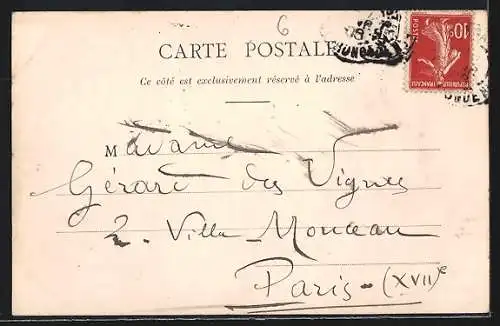 6
CARTE POSTALE
Ce côté est exclusivement réservé à l'adresse
Madame
Gérard des Vignes
2. Villa Monceau
Paris-(XVII)e
10c
POSTES
REPUBLIQUE FRANÇAISE